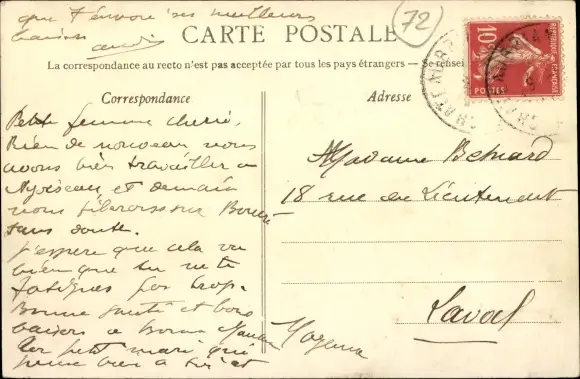 que t'envoie ses meilleurs
baisers
72
CARTE POSTALE
La correspondance au recto n'est pas acceptée par tous les pays étrangers — Se rensei
REPUBLIQUE FRANÇAISE
10
POSTES
Correspondance
Adresse
Petite femme chérie,
Rien de nouveau nous
avons bien travailler a
et demain
nous filerons sur
sans doute.
J'espère que cela va
bien que tu ne te
fatigues pas trop.
Bonne santé et bons
baisers a Bonne Maman
Ton petit mari qui
pense bien à toi et
Madame Besnard
18 rue du Lieutenant
Laval
Mayenne